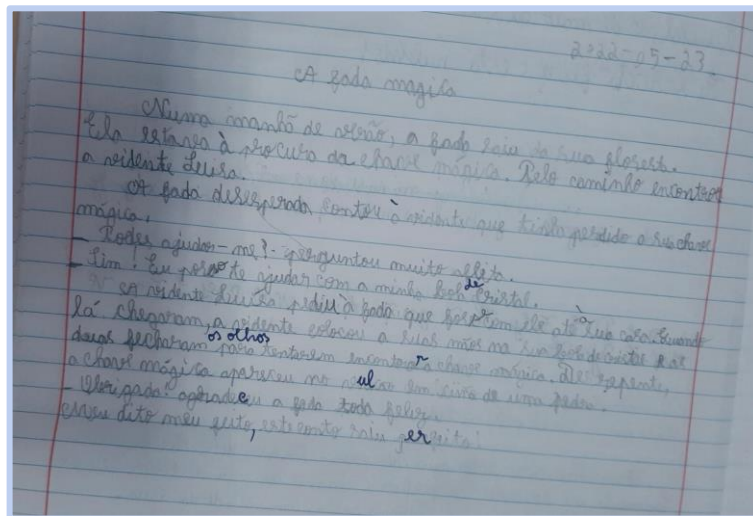 2022-05-23.
A fada magica
Numa manhã de verão, a fada saiu da sua florest.
Ela estava à procura da chave mágica. Pelo caminho encontrou
a vidente Luisa.
A fada desesperada, contou à vidente que tinha perdido a sua chave
mágica.
- Podes ajudar-me?- perguntou muito aflita.
- Sim. Eu posso te ajudar com a minha bola de Cristal.
A vidente Luisa pediu à fada que fosse com ele até à sua casa. Quando
lá chegaram, a vidente colocou a suas mãos na sua bola de cristal e as
duas fecharam os olhos para tentarem encontrar a chave mágica. De repente,
a chave mágica apareceu no vulcão em cima de uma pedra.
- Obrigada. agradeceu a fada toda feliz.
meu dito meu feito, este conto saiu perfeito!